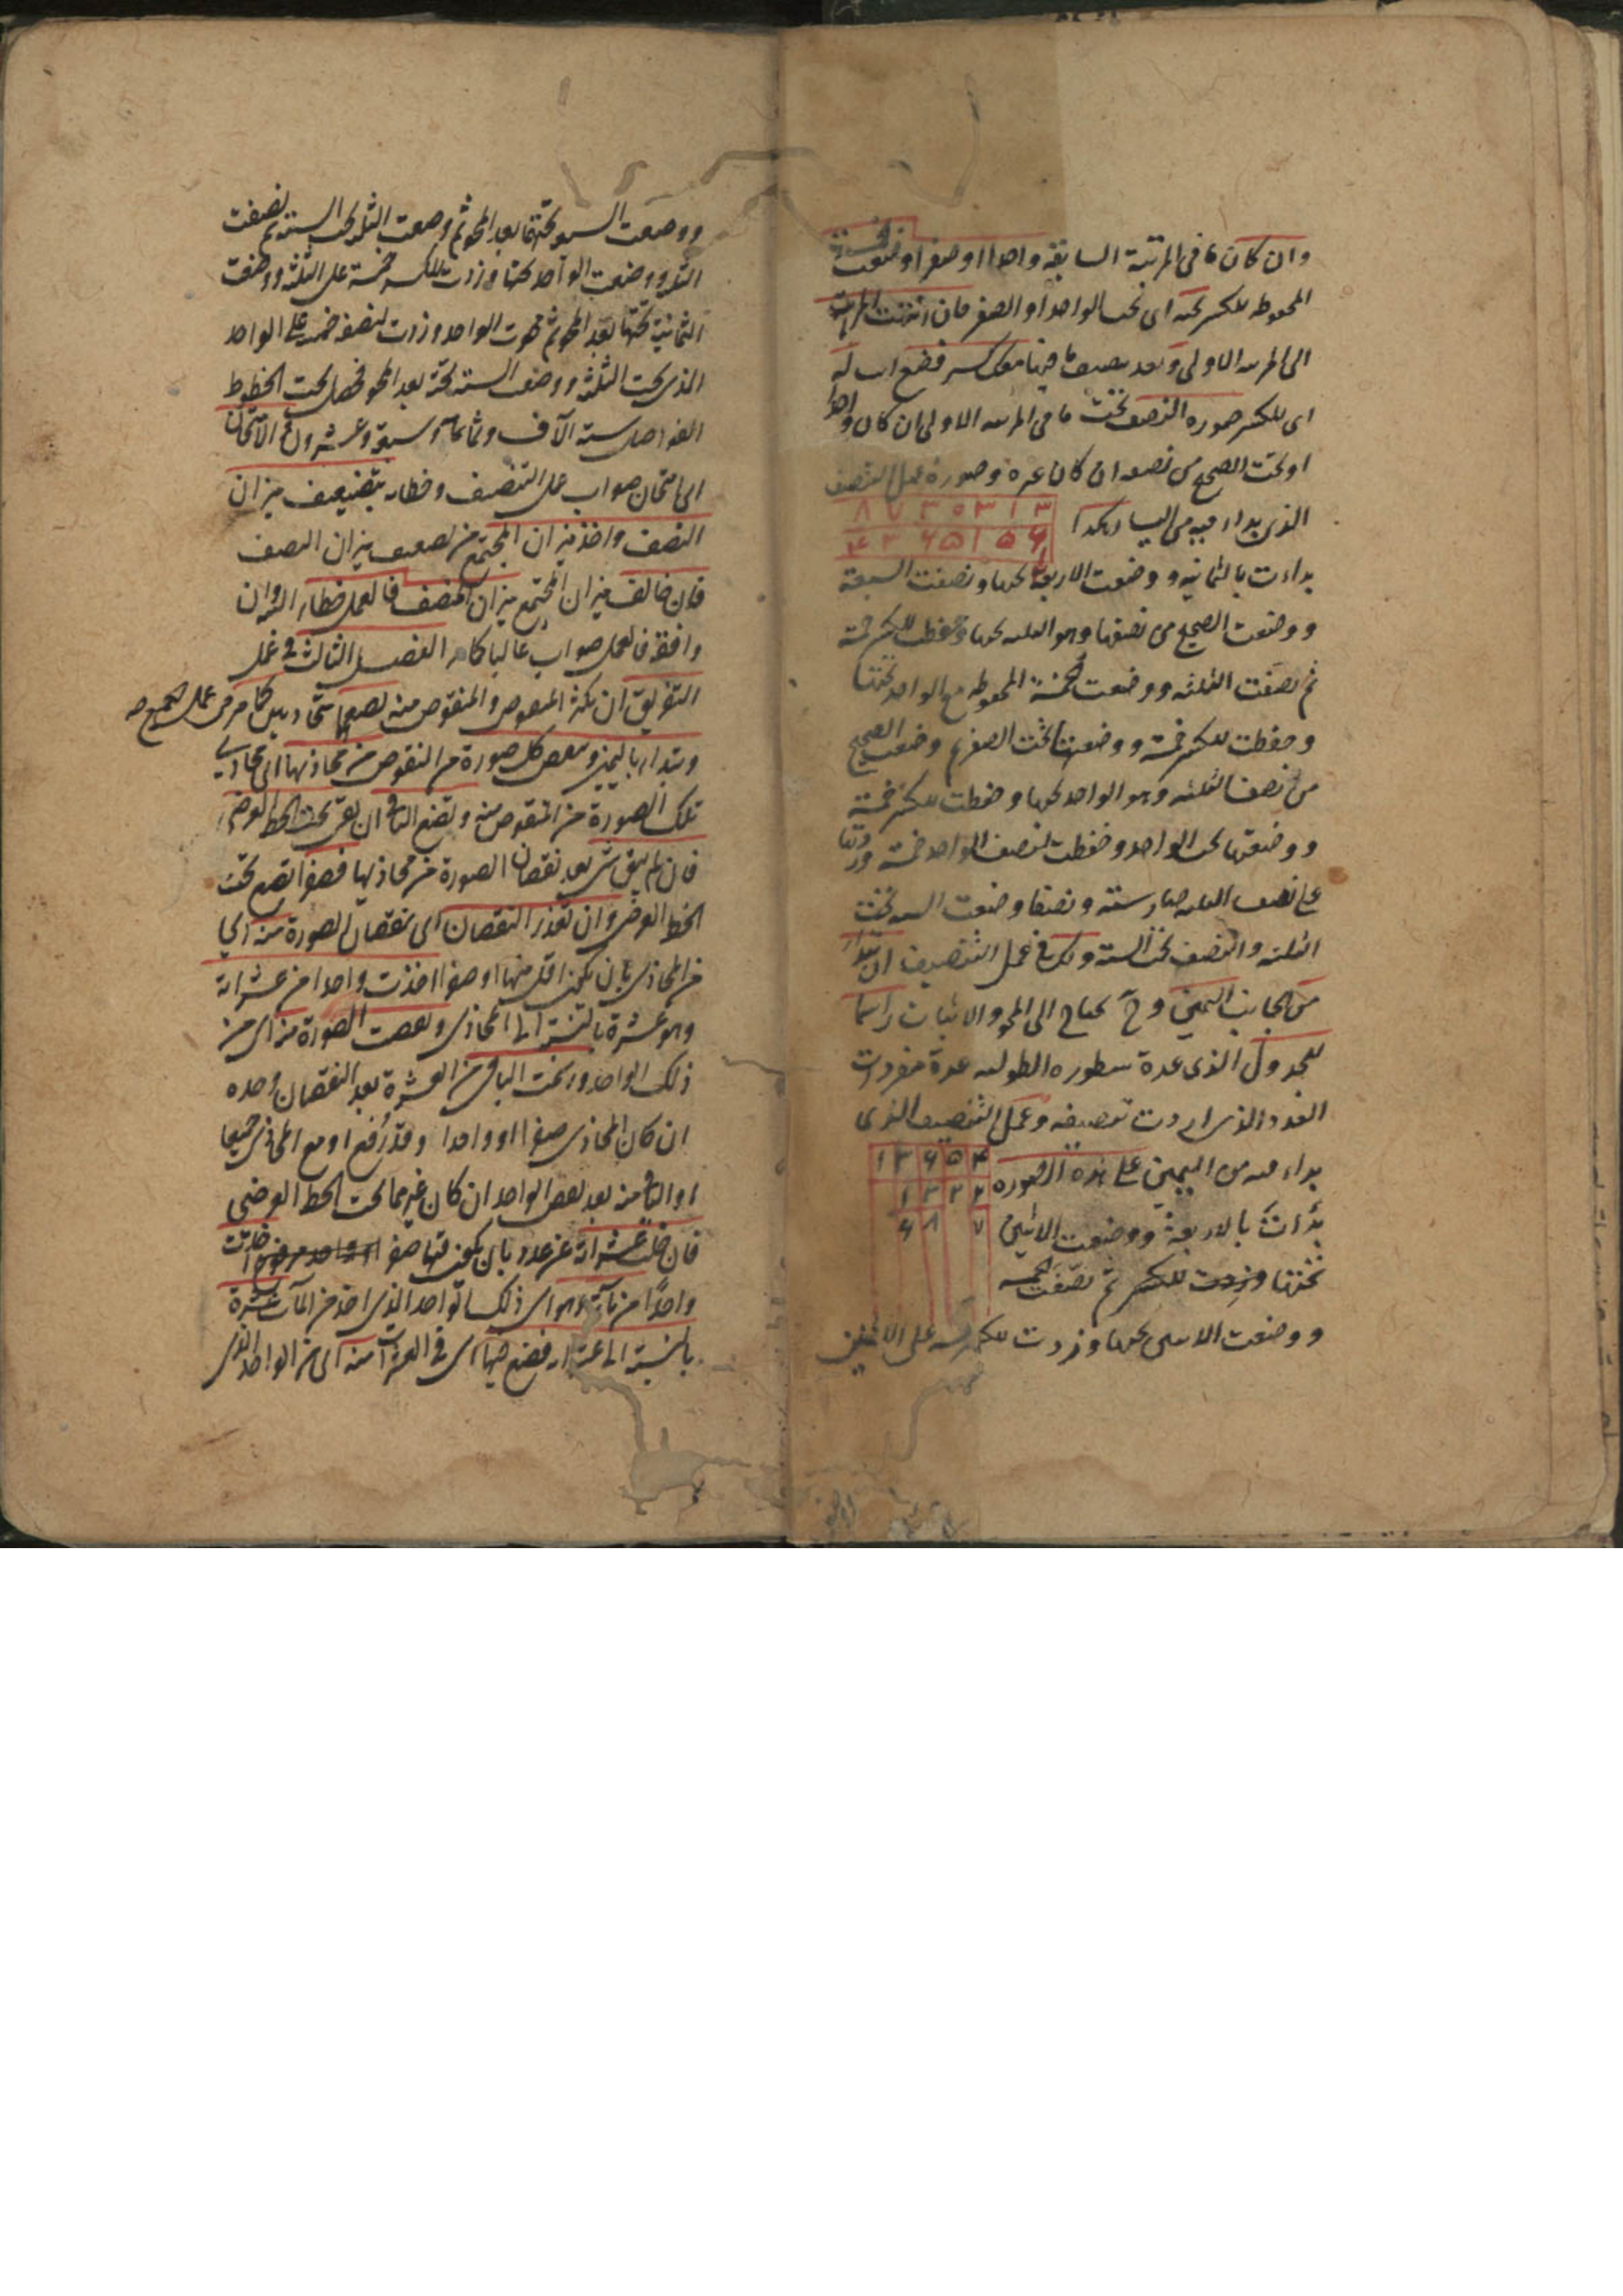 وان كان ما فى المرتبة السابقة واحدا او صفرا وضعت الخمسة
المحفوظه للكسر تحته اى تحت الواحد او الصفر فان انتهت المراتب
الى المرتبه الاولى وبعد تنصيف ما فيها معك كسر فضع له
اى للكسر صورة النصف تحت ما فى المرتبه الاولى ان كان واحدا
او تحت الصحيح من نصفه ان كان غيره وصورة عمل التنصيف
الذى بداء فيه من اليسار هكذا
٨ ٧ ٣ ٥ ٣ ١ ٣
٤ ٣ ٦ ٥ ١ ٥ ٦
بداءت بالثمانيه ووضعت الاربعة تحتها ونصفت السبعة
ووضعت الصحيح من نصفها وهو الثلثه تحتها وحفظت للكسر خمسة
ثم نصفت الثلثه ووضعت الخمسة المحفوظه مع الواحد تحتها
وحفظت للكسر خمسة ووضعتها تحت الصفر ثم وضعت الصحيح
من نصف الثلثه وهو الواحد تحتها وحفظت للكسر خمسة
ووضعتها تحت الواحد وحفظت لنصف الواحد خمسة وزدتها
على نصف الثلثه صار ستة ونصفا وضعت الستة تحت
الثلثه والنصف تحت الستة ولك فى عمل التنصيف ان تبدأ
من الجانب اليمين وح تحتاج الى المحو والاثبات راسما
للجدول الذى عدة سطوره الطوليه عدة مفردات
العدد الذى اردت تنصيفه وعمل التنصيف الذى
بداء فيه من اليمين على هذه الصوره
١ ٣ ٦ ٥ ٤
١ ٣ ٢ ٢
٦ ٨ ٧
بدأت بالاربعة ووضعت الاثنين
تحتها وزدت للكسر ثم نصفت الخمسه
ووضعت الاثنين تحتها وزدت للكسر خمسه على الاثنين
ووضعت السبعة تحتهما بعد المحو ثم وضعت الثلثه تحت الستة ثم نصفت
الثلثه ووضعت الواحد تحتها وزدت للكسر خمسة على الثلثه ووضعت
الثمانية تحتها بعد المحو ثم محوت الواحد وزدت لنصفه خمسة على الواحد
الذى تحت الثلثة ووضعت الستة تحته بعد المحو فحصل تحت الخطوط
الفواصل ستة آلاف وثمانمأة وسبعة وعشرون والامتحان
اى امتحان صواب عمل التنصيف وخطائه بتضعيف ميزان
النصف واخذ ميزان المجتمع من تضعيف ميزان النصف
فان خالف ميزان المجتمع ميزان المنصف فالعمل خطاء البته وان
وافقه فالعمل صواب غالبا كما مر الفصل الثالث فى عمل
التفريق ان تكتب المنقوص والمنقوص منه تضعهما متحاذيين كما مر فى عمل الجمع صح
وتبداء باليمين وتنقص كل صورة من المنقوص من محاذيها اى محاذى
تلك الصورة من المنقوص منه وتضع الباقى ان بقى تحت الخط العرضى
فان لم يبق شئ بعد نقصان الصورة من محاذيها فصفرا تضع تحت
الخط العرضى وان تعذر النقصان اى نقصان الصورة منه اى
من المحاذى بان يكون اقل منها او صفرا اخذت واحدا من عشراته
وهو عشرة بالنسبة الى المحاذى ونقصت الصورة منه اى من
ذلك الواحد ورسمت الباقى من العشرة بعد النقصان وحده
ان كان المحاذى صفرا او واحدا وقد رفع او مع المحاذى جميعا
او الباقى منه بعد نقص الواحد ان كان غيرهما تحت الخط العرضى
فان خلت عشراته عن عدد بان يكون فيها صفر اخذت
واحدا من مآته وهو اى ذلك الواحد الذى اخذ من المآت عشرة
بالنسبة الى عشراته فضع فيها اى فى العشرات منه اى من الواحد الذى